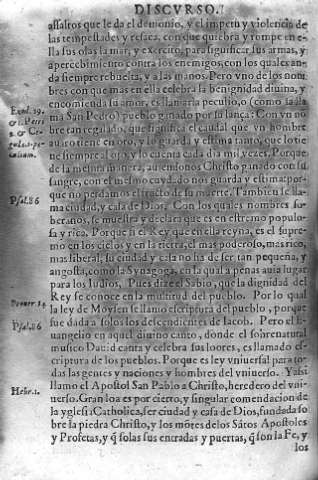 DISCVRSO.
assaltos que le da el demonio, y el impetu y violencia de
las tempestades y resaca, con que quiebra y rompe en e-
lla sus olas la mar, y exercito, para significar sus armas, y
apercebimiento contra los enemigos, con los quales an-
da siempre rebuelta, y a las manos. Pero vno de los nom-
bres con que mas en ella celebra la benignidad diuina, y
encomienda su amor, es llamarla peculio, o (como la lla-
ma San Pedro) pueblo ganado por su lança: Con vn nõ
bre tan regalado, que significa el caudal que vn hombre
auaro tiene en oro, y lo guarda y estima tanto, que lo tie
ne siempre al ojo, y lo cuenta cada dia mil vezes. Porque
de la mesma manera, auiendonos Christo ganado con su
sangre, con el mesmo cuydado nos guarda y estima, por-
que no perdamos el fructo de su muerte. Tambien se lla-
ma ciudad, y casa de Dios. Con los quales nombres so-
beranos, se muestra y declara que es en estremo populo-
sa y rica. Porque si el Rey que en ella reyna, es el supre-
mo en los cielos y en la tierra, el mas poderoso, mas rico,
mas liberal, su ciudad y casa no ha de ser tan pequeña, y
angosta, como la Synagoga, en la qual a penas auia lugar
para los Iudios, Pues dize el Sabio, que la dignidad del
Rey se conoce en la multitud del pueblo. Por lo qual
la ley de Moysen se llamo escriptura del pueblo, porque
fue dada a solos los descendientes de Iacob. Pero el E-
uangelio en aquel diuino canto, donde el sobrenatural
musico Dauid canta y celebra sus loores, es llamado es-
criptura de los pueblos. Porque es ley vniuersal para to-
das las gentes y naciones y hombres del vniuerso. Y assi
llamo el Apostol San Pablo a Christo, heredero del vni-
uerso. Gran loa es por cierto, y singular comendacion de
la yglesia Catholica, ser ciudad y casa de Dios, fundada so
bre la piedra Christo, y los mõtes de los Sãtos Apostoles
y Prophetas, y q̃ solas sus entradas y puertas, q̃ son la Fe, y
los
Exod. 19.
& 1. Petri
2. &
Psal. 86
Prouer. 14
Psal. 86
Hebr. 1.